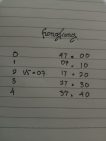 0 47 . 00
1 07 . 10
2 V5 + 07 17 . 20
3 27 . 30
4 37 . 40